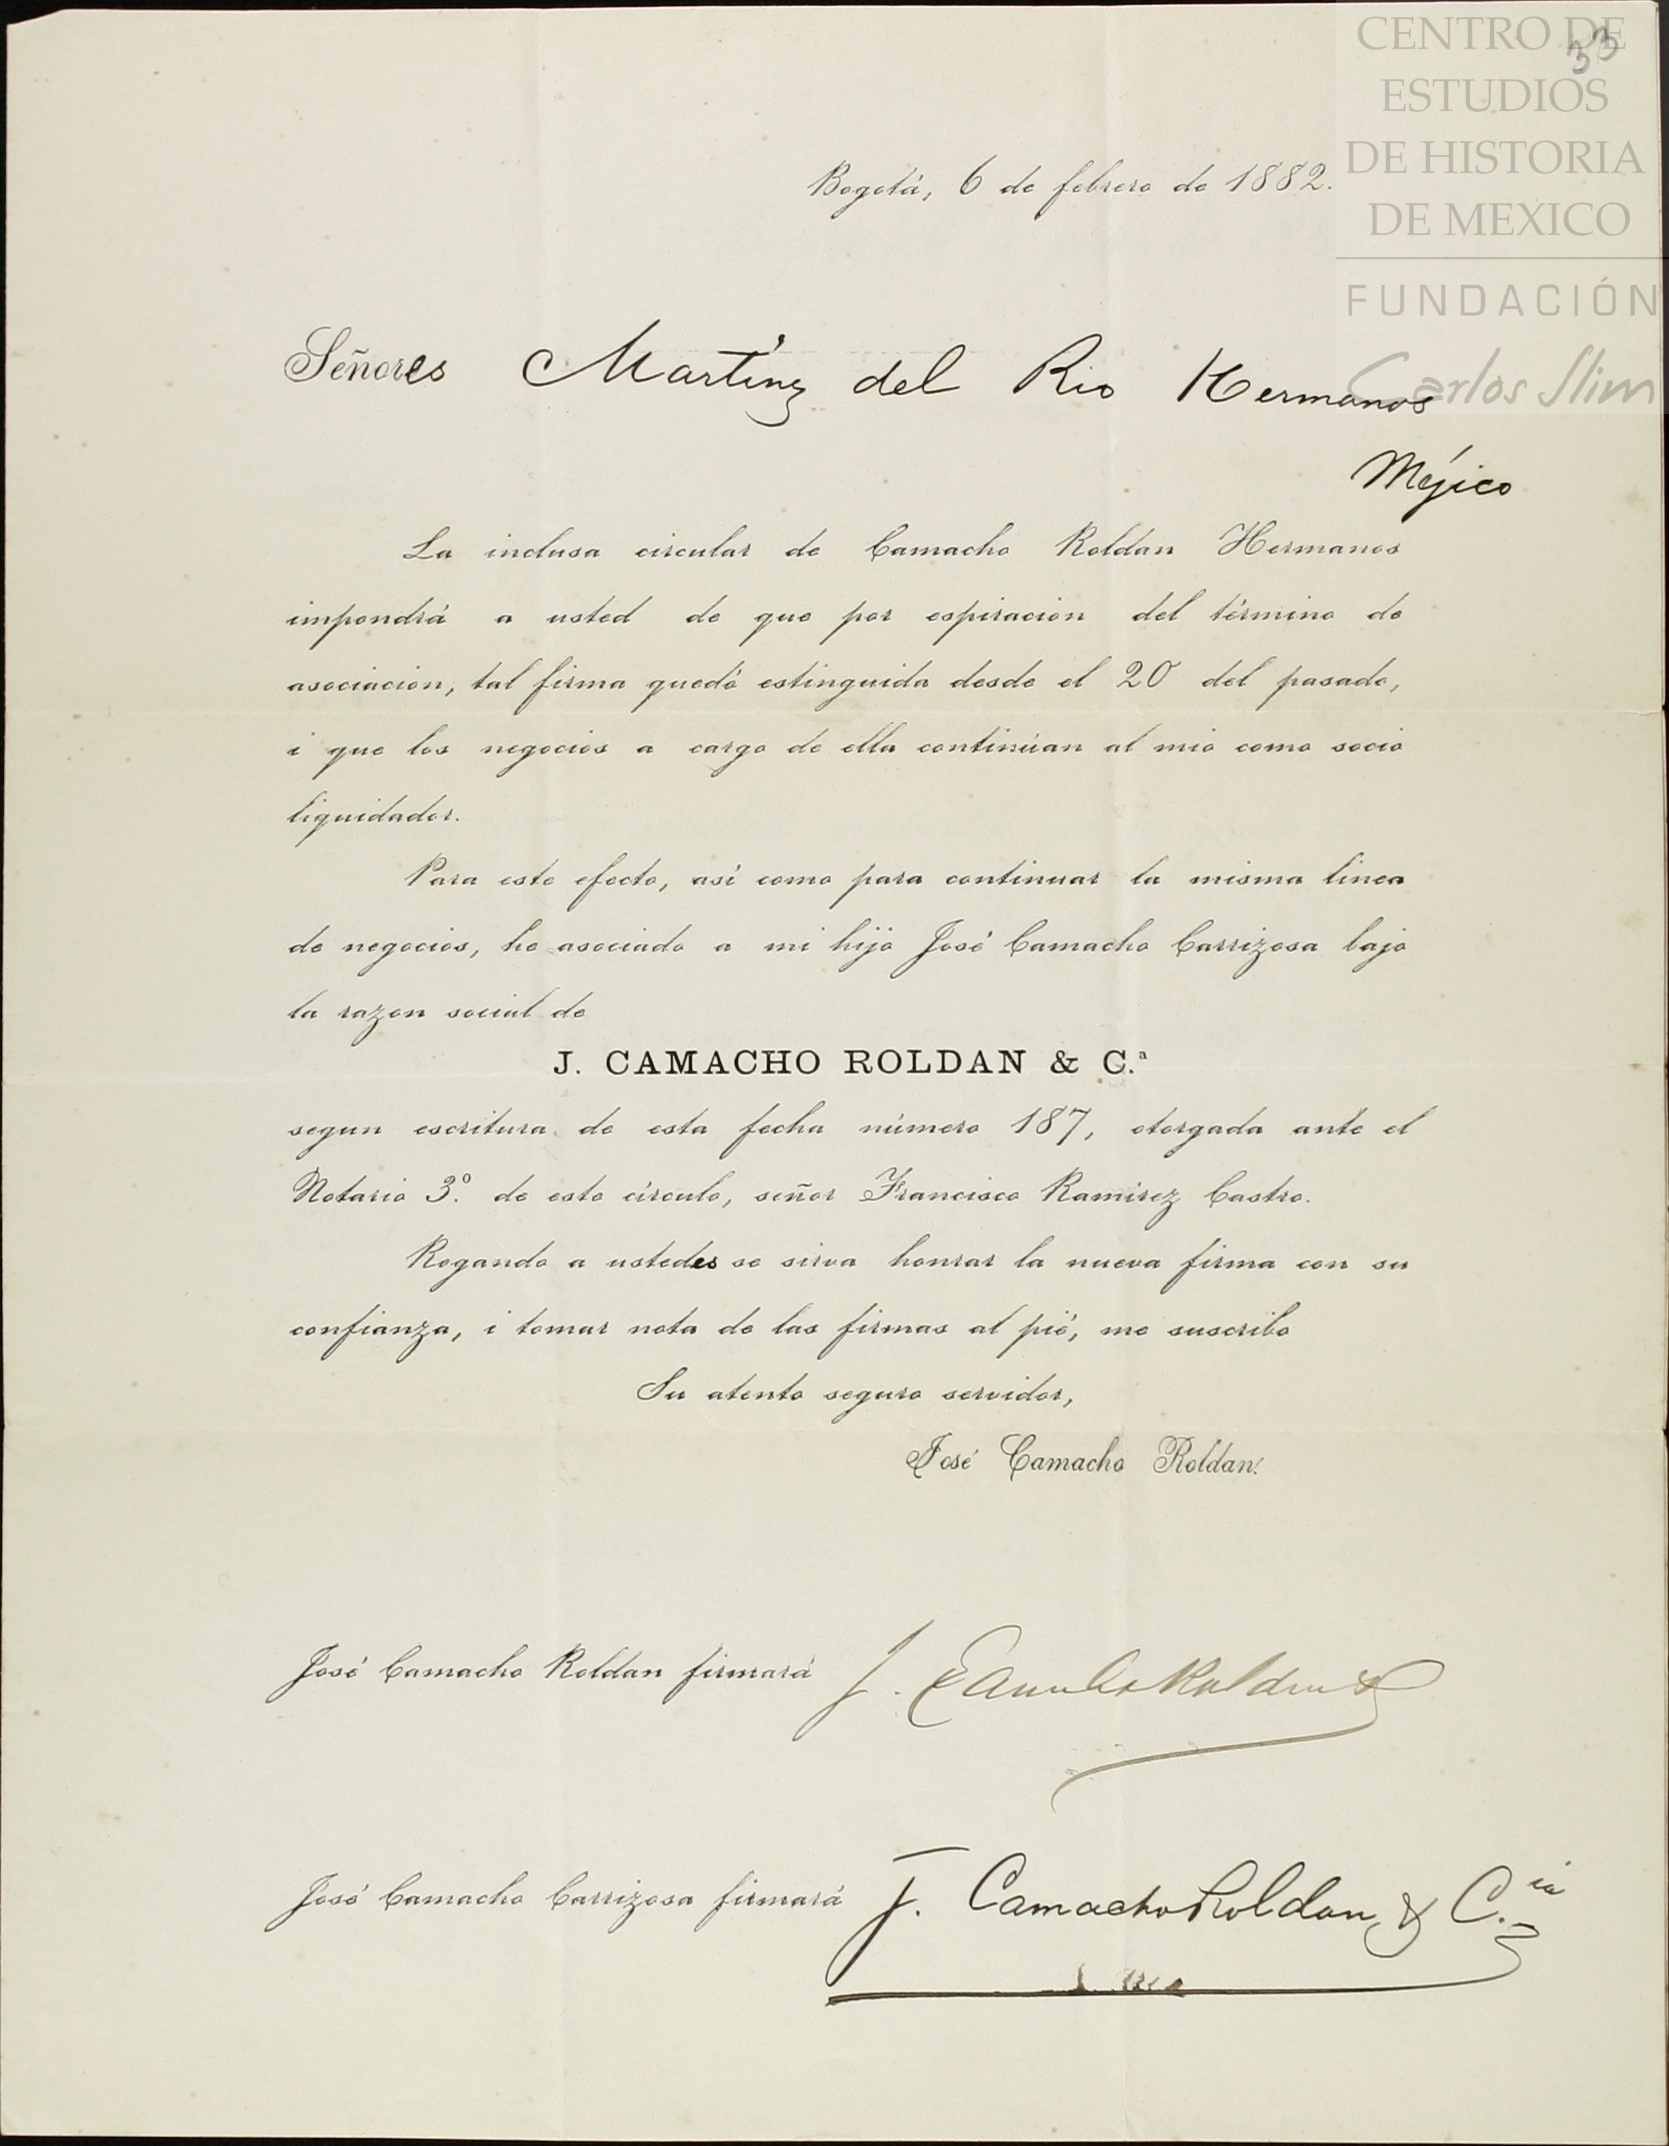 CENTRO DE
ESTUDIOS
DE HISTORIA
DE MEXICO
FUNDACIÓN
Carlos Slim
33
Bogotá, 6 de febrero de 1882.
Señores Martinz del Rio Hermanos
Méjico
La inclusa circular de Camacho Roldan Hermanos
impondrá a usted de que por espiracion del término de
asociacion, tal firma quedó estinguida desde el 20 del pasado,
i que los negocios a cargo de ella continúan al mio como socio
liquidador.
Para este efecto, así como para continuar la misma linea
de negocios, he asociado a mi hijo José Camacho Carrizosa bajo
la razon social de
J. CAMACHO ROLDAN & C.ª
segun escritura de esta fecha número 187, otorgada ante el
Notario 3.º de este círculo, señor Francisco Ramirez Castro.
Rogando a ustedes se sirva honrar la nueva firma con su
confianza, i tomar nota de las firmas al pié, me suscribo
Su atento seguro servidor,
José Camacho Roldan.
José Camacho Roldan firmará J. Camacho Roldan &
José Camacho Carrizosa firmará J. Camacho Roldan & C.ia